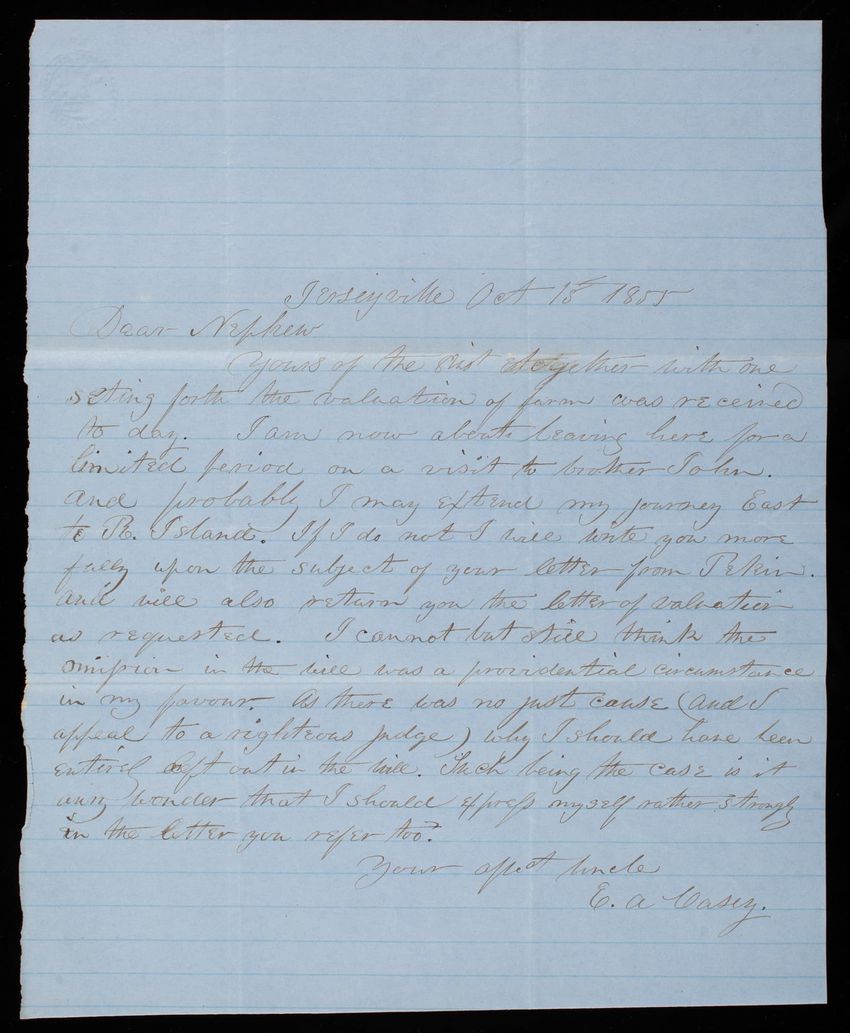 Jerseyville Oct 15th 1855
Daar Nephew
Yours of the 8inst together with one
seting forth the valuation of farm was received
to day. I am now about leaving here for a
limited period on a visit to brother John.
And probably I may extend my journey East
to R. Island. If I do not I will write you more
fully upon the subject of your letter from Pekin.
and will also return you the letter of valuation
as requested. I cannot but still think the
omission in the will was a providential circumstance
in my favour. As there was no just cause (and I
appeal to a righteous judge) why I should have been
entirel left out in the will. Such being the case is it
any wonder that I should express myself rather strongly
in the letter you refer too?
Your afect Uncle
E. A Casey.